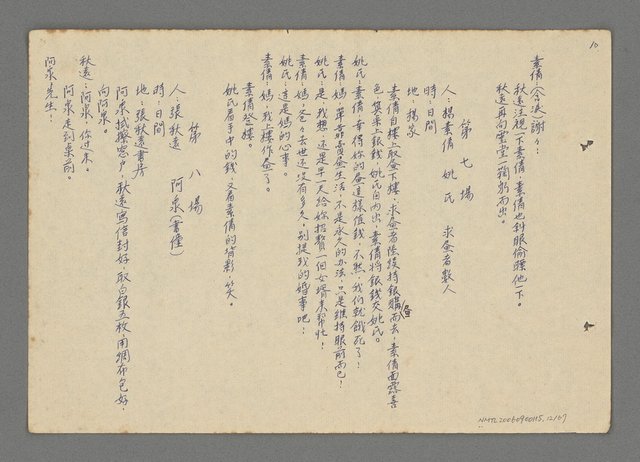 10
素倩(含淚)謝々：
秋遠注視一下素倩，素倩也斜眼偷瞟他一下。
秋遠再向靈堂一鞠躬而出。
第七場
人：楊素倩 姚氏 求畫者數人
時：日間
地：楊家
素倩自樓上取畫下樓，求畫者陸續持銀購畫而去，素倩面露喜
色，集桌上銀錢，姚氏自內出，素倩將銀錢交姚氏。
姚氏：素倩，幸得妳的畫這樣值錢，不然，我們就餓死了！
素倩：媽，單靠賣畫生活，不是永久的办法，只是維持眼前而已！
姚氏：是，我想，还是早一天給妳招贅一個女壻來幫忙！
素倩：媽，爸々去世还沒有多久，別提我的婚事吧！
姚氏：這是媽的心事。
素倩：媽，我上樓作畫了。
素倩登樓。
姚氏看手中的錢，又看素倩的背影，笑。
第八場
人：張秋遠 阿泉(書僮)
時：日間
地：張秋遠書房
阿泉拭擦窗户，秋遠寫信封好，取白銀五枚，用綢布包好，
向阿泉。
秋遠：阿泉，你过來。
阿泉走到桌前。
阿泉：先生！
NMTL20060900115.12/67